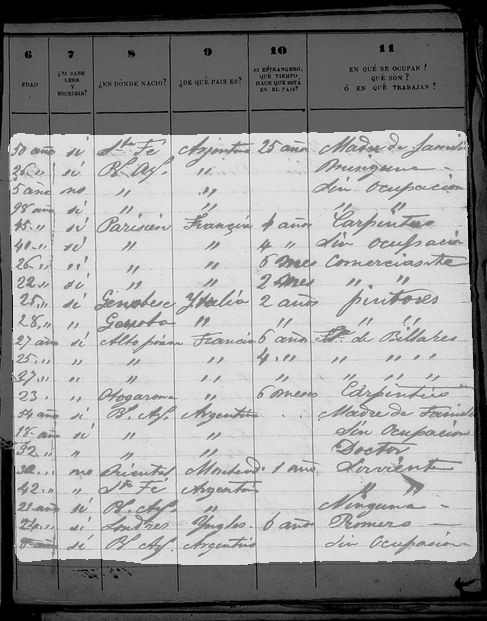 6 7 8 9 10 11
EDAD ¿SI SABE LEER Y ESCRIBIR? ¿EN DÓNDE NACIÓ? ¿DE QUÉ PAIS ES? SI ESTRANGERO, QUÉ TIEMPO HACE QUE ESTÁ EN EL PAIS? EN QUÉ SE OCUPAN? QUÉ SON? Ó EN QUÉ TRABAJAN?
50 año sí Sta Fé Arjentina 25 año Madre de famili
26 " sí Bs Ays " Ninguna —
5 año no " " Sin Ocupacion
98 año sí " " " "
45 " sí Parisien Francia 4 años Carpintero
40 " sí " " 4 " Sin ocupacion
26 " sí " " 6 mes Comerciante
22 " sí " " 2 mes " "
25 " sí Italia 2 años pintores
28 " " Genoba " " "
27 año sí Francia 6 año de Billares
25 " " " " 4 " " " "
27 " " " " " " " "
23 " " " 6 meses Carpintero
54 año sí Bs Ays Argentino Madre de Famili
18 año sí " " Sin Ocupacion
32 " " " " Doctor
30 " no Oriental Montevid 1 año Sirviente
42 " " Sta Fé Argentin " "
21 año sí Bs Ays " Ninguna —
24 " sí Londres Yngles 6 año Romero —
8 año sí Bs Ays Argentino Sin Ocupacion